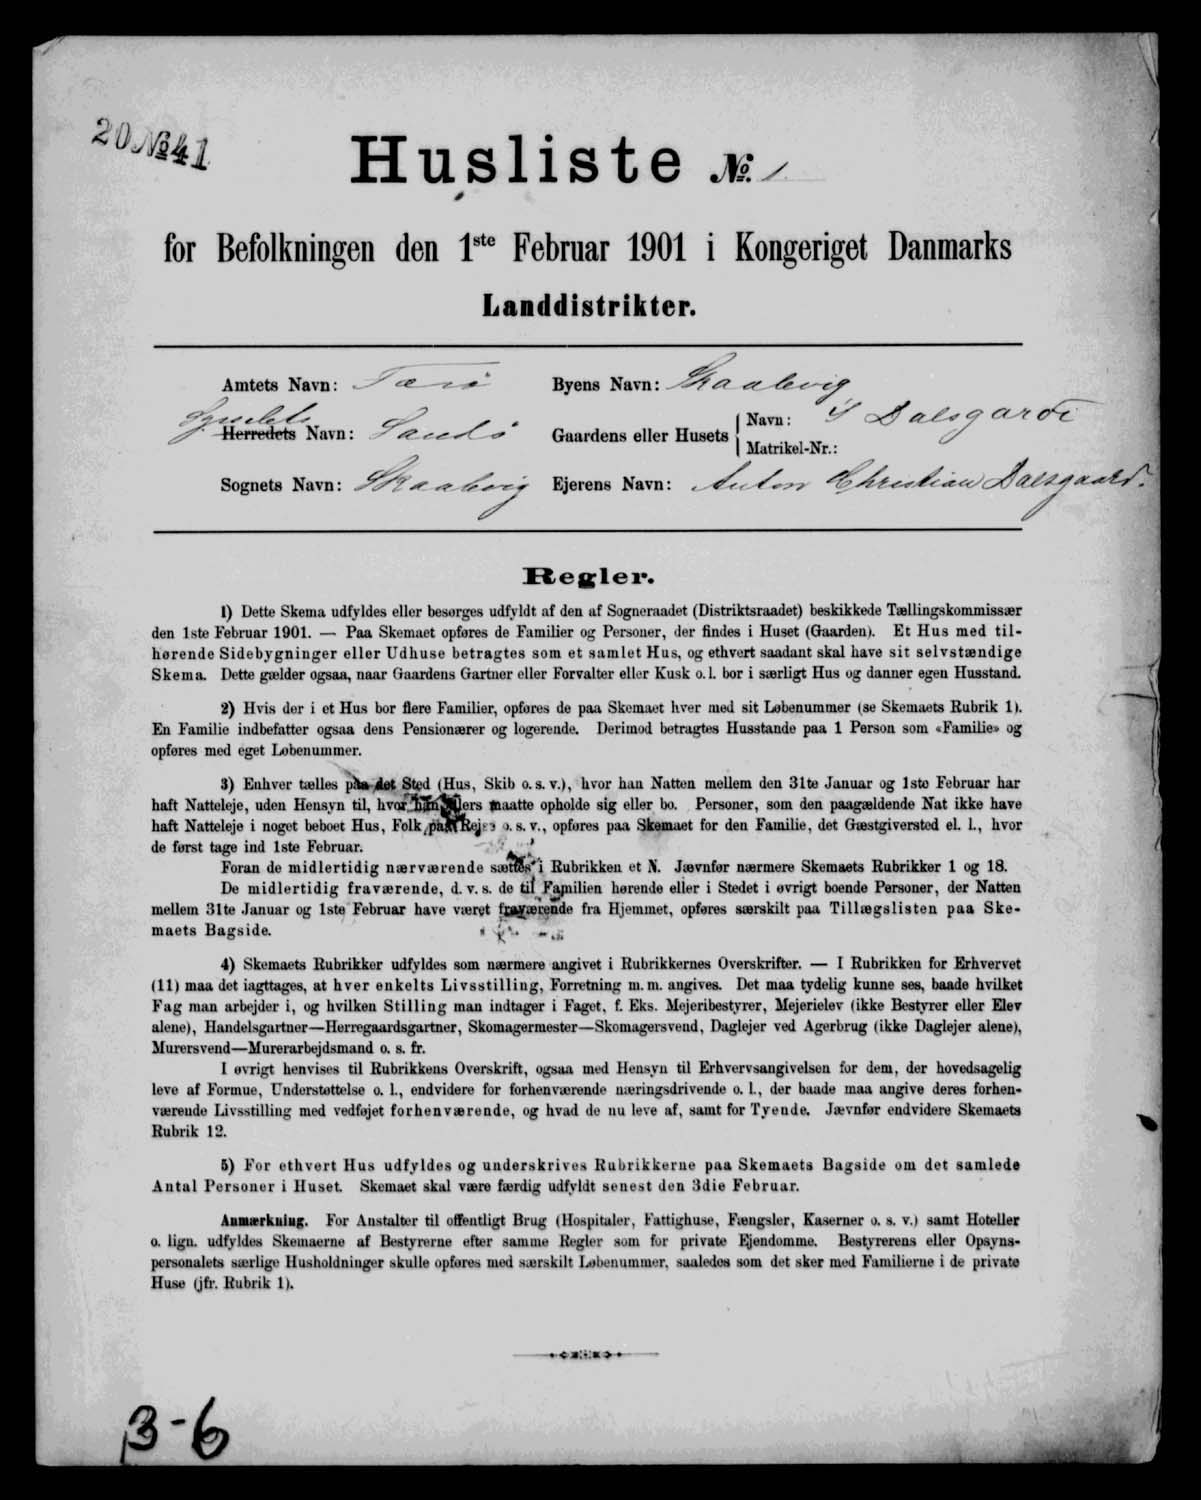 20 № 41
Husliste №. 1
for Befolkningen den 1ste Februar 1901 i Kongeriget Danmarks
Landdistrikter.
Amtets Navn: Færø
Byens Navn: Skaalevig
Syslets
Herredets Navn: Sandø
Gaardens eller Husets
Navn: Dalsgardi
Matrikel-Nr.:
Sognets Navn: Skaalevig
Ejerens Navn: Anton Christian Dalsgaard.
Regler.
1) Dette Skema udfyldes eller besørges udfyldt af den af Sogneraadet (Distriktsraadet) beskikkede Tællingskommissær
den 1ste Februar 1901. — Paa Skemaet opføres de Familier og Personer, der findes i Huset (Gaarden). Et Hus med til-
hørende Sidebygninger eller Udhuse betragtes som et samlet Hus, og ethvert saadant skal have sit selvstændige
Skema. Dette gælder ogsaa, naar Gaardens Gartner eller Forvalter eller Kusk o. l. bor i særligt Hus og danner egen Husstand.
2) Hvis der i et Hus bor flere Familier, opføres de paa Skemaet hver med sit Løbenummer (se Skemaets Rubrik 1).
En Familie indbefatter ogsaa dens Pensionærer og logerende. Derimod betragtes Husstande paa 1 Person som «Familie» og
opføres med eget Løbenummer.
3) Enhver tælles paa det Sted (Hus, Skib o. s. v.), hvor han Natten mellem den 31te Januar og 1ste Februar har
haft Natteleje, uden Hensyn til, hvor han ellers maatte opholde sig eller bo. Personer, som den paagældende Nat ikke have
haft Natteleje i noget beboet Hus, Folk paa Rejse o. s. v., opføres paa Skemaet for den Familie, det Gæstgiversted el. l., hvor
de først tage ind 1ste Februar.
Foran de midlertidig nærværende sættes i Rubrikken et N. Jævnfør nærmere Skemaets Rubrikker 1 og 18.
De midlertidig fraværende, d. v. s. de til Familien hørende eller i Stedet i øvrigt boende Personer, der Natten
mellem 31te Januar og 1ste Februar have været fraværende fra Hjemmet, opføres særskilt paa Tillægslisten paa Ske-
maets Bagside.
4) Skemaets Rubrikker udfyldes som nærmere angivet i Rubrikkernes Overskrifter. — I Rubrikken for Erhvervet
(11) maa det iagttages, at hver enkelts Livsstilling, Forretning m. m. angives. Det maa tydelig kunne ses, baade hvilket
Fag man arbejder i, og hvilken Stilling man indtager i Faget, f. Eks. Mejeribestyrer, Mejerielev (ikke Bestyrer eller Elev
alene), Handelsgartner—Herregaardsgartner, Skomagermester—Skomagersvend, Daglejer ved Agerbrug (ikke Daglejer alene),
Murersvend—Murerarbejdsmand o. s. fr.
I øvrigt henvises til Rubrikkens Overskrift, ogsaa med Hensyn til Erhvervsangivelsen for dem, der hovedsagelig
leve af Formue, Understøttelse o. l., endvidere for forhenværende næringsdrivende o. l., der baade maa angive deres forhen-
værende Livsstilling med vedføjet forhenværende, og hvad de nu leve af, samt for Tyende. Jævnfør endvidere Skemaets
Rubrik 12.
5) For ethvert Hus udfyldes og underskrives Rubrikkerne paa Skemaets Bagside om det samlede
Antal Personer i Huset. Skemaet skal være færdig udfyldt senest den 3die Februar.
Anmærkning. For Anstalter til offentligt Brug (Hospitaler, Fattighuse, Fængsler, Kaserner o. s. v.) samt Hoteller
o. lign. udfyldes Skemaerne af Bestyrerne efter samme Regler som for private Ejendomme. Bestyrerens eller Opsyns-
personalets særlige Husholdninger skulle opføres med særskilt Løbenummer, saaledes som det sker med Familierne i de private
Huse (jfr. Rubrik 1).
3-6